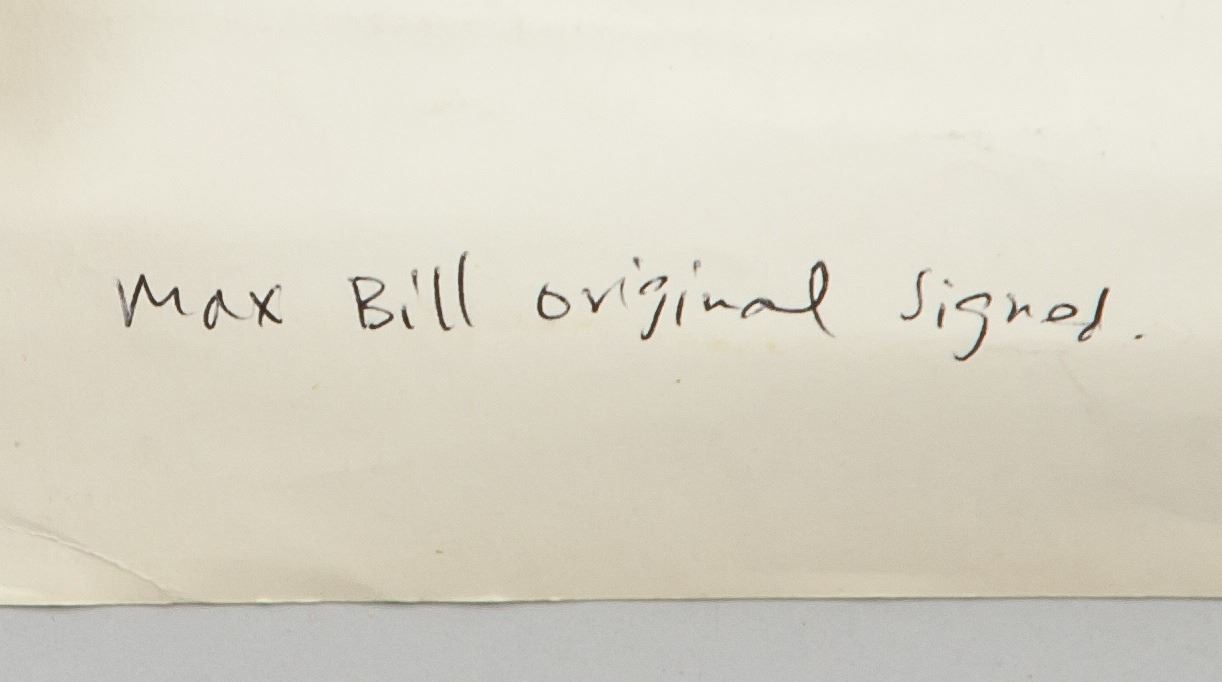 Max Bill original signed.